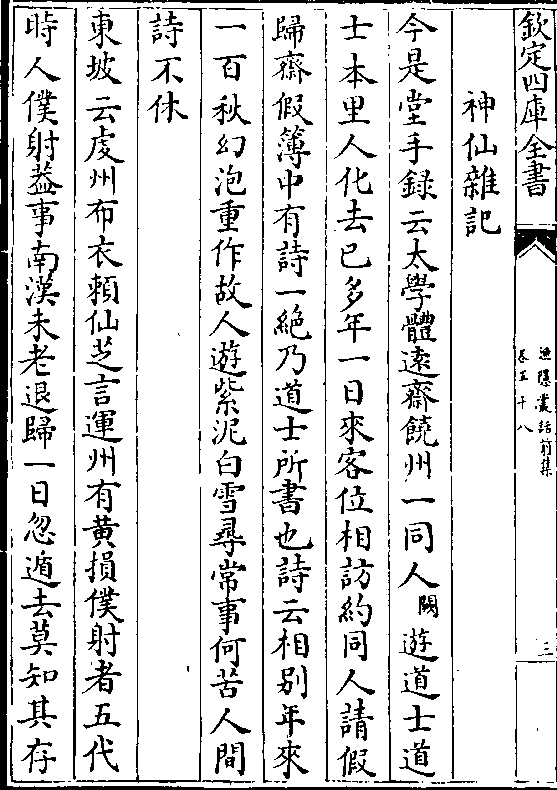 欽定四庫全書
漁隱叢話前集
卷五十八
三
神仙雜記
今是堂手録云太學體遠齋饒州一同人闕遊道士道
士本里人化去已多年一日來客位相訪約同人請假
歸齋假簿中有詩一絶乃道士所書也詩云相别年來
一百秋幻泡重作故人遊紫泥白雪尋常事何苦人間
詩不休
東坡云虔州布衣賴仙芝言運州有黄損僕射者五代
時人僕射葢事南漢未老退歸一日忽遁去莫知其存